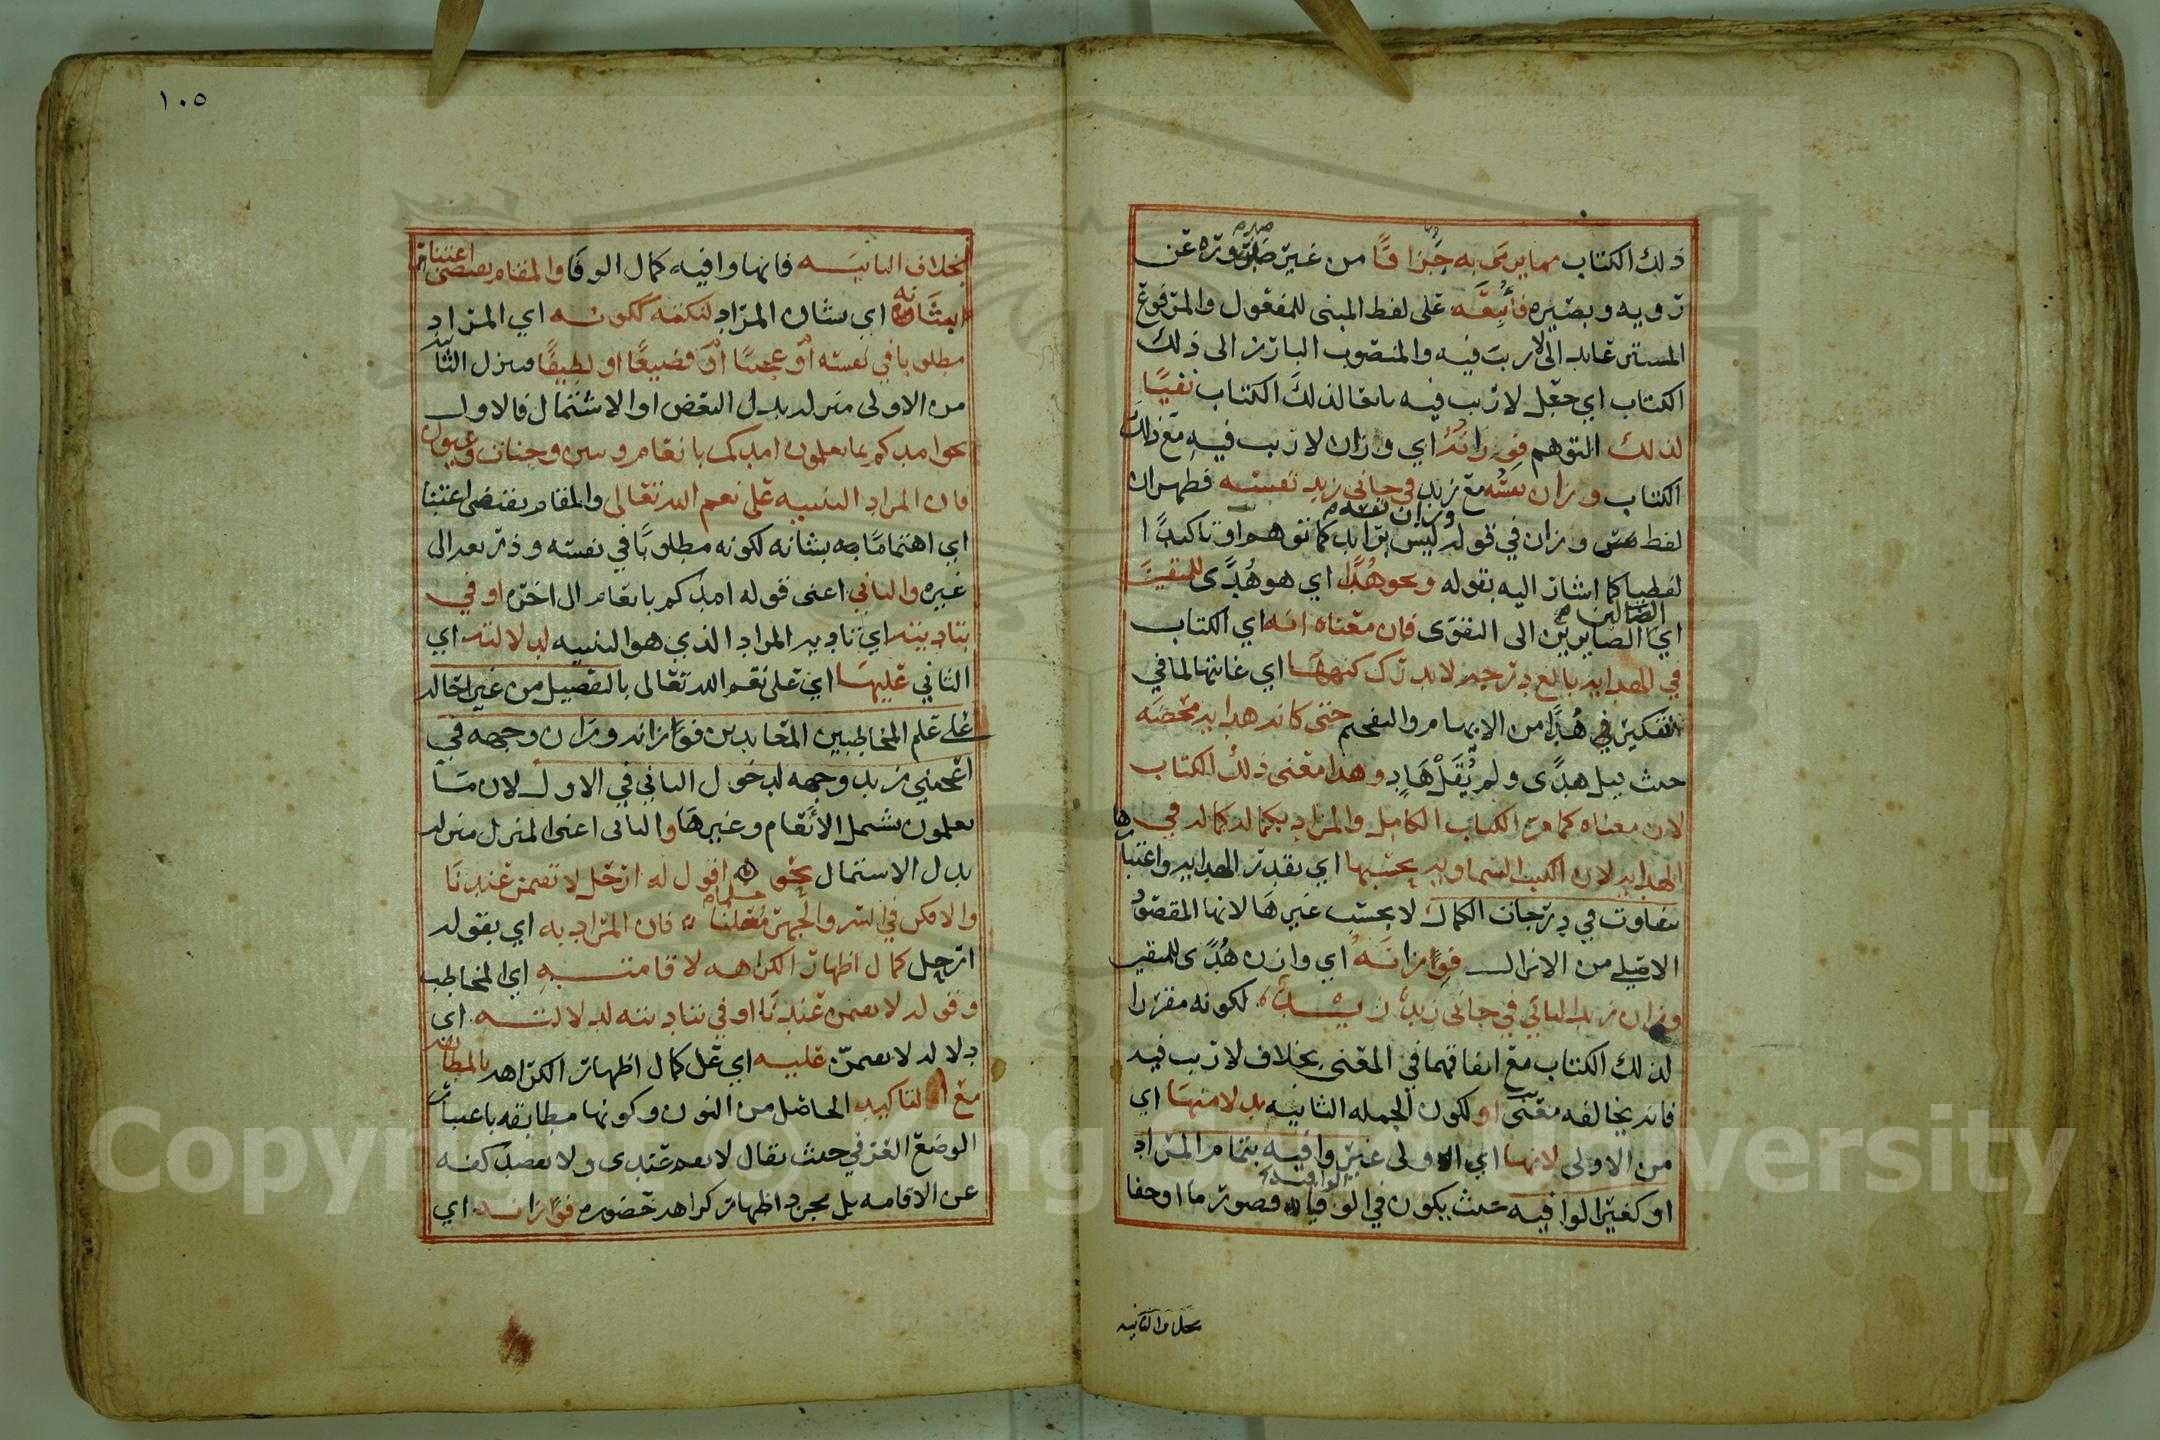 ذلك الكتاب مما يرمى به جزافا من غير صدوره عن
رويه وبصيره فأتبعه على لفظ المبنى للمفعول والمرفوع
المستتر عايد الى لا ريب فيه والمنصوب البارز الى ذلك
الكتاب اي جعل لا ريب فيه تابعا لذلك الكتاب نفيا
لذلك التوهم فوزانه اي وزان لا ريب فيه مع ذلك
الكتاب وزان نفسه مع زيد في جاني زيد نفسه فظهر ان
لفظ وزان في قوله وزان نفسه ليس بزايد كما توهم او تاكيدا
لفظيا كما اشار اليه بقوله ونحو هدى اي هو هدى للمتقين
اي الضالين الصايرين الى التقوى فان معناه انه اي الكتاب
في الهدايه بالغ درجه لا يدرك كنهها اي غايتها لما في
تنكير هدى من الابهام والتفخيم حتى كانه هدايه محضه
حيث قيل هدى ولم يقل هاد وهذا معنى ذلك الكتاب
لان معناه كما مر الكتاب الكامل والمراد بكماله كماله في
الهدايه لان الكتب السماويه بحسبها اي بقدر الهدايه واعتبارها
تتفاوت في درجات الكمال لا بحسب غيرها لانها المقصود
الاصلي من الانزال فوزانه اي وازن هدى للمتقين
وزان زيد الثاني في جاني زيد زيد لكونه مقررا
لذلك الكتاب مع اتفاقهما في المعنى بخلاف لا ريب فيه
فانه يخالفه معنى او لكون الجمله الثانيه بدلا منها اي
من الاولى لانها اي الاولى غير وافيه بتمام المراد
او كغير الوافيه حيث يكون في الوفا قصور ما او خفا
بخلاف الثانيه
١٠٥
بخلاف الثانيه فانها وافيه كمال الوفا والمقام يقتضى اعتناء
بشانه اي بشان المراد لنكته ككونه اي المراد
مطلوبا في نفسه او عجيبا او فضيعا او لطيفا فتنزل الثانيه
من الاولى منزله بدل البعض او الاشتمال فالاول
نحو امدكم بما تعلمون امدكم بانعام وبنين وجنات وعيون
فان المراد التنبيه على نعم الله تعالى والمقام يقتضى اعتناء
اي اهتماما به بشانه لكونه مطلوبا في نفسه وذريعه الى
غيره والثاني اعنى قوله امدكم بانعام الى اخره اوفى
بتاديته اي تاديه المراد الذي هو التنبيه لدلالته اي
الثاني عليها اي على نعم الله تعالى بالتفصيل من غير احاله
على علم المخاطبين المعاندين فوزانه وزان وجهه في
اعجبني زيد وجهه لدخول الثاني في الاول لان ما
تعلمون يشمل الانعام وغيرها والثانى اعنى المنزل منزله
بدل الاشتمال نحو اقول له ارحل لا تقيمن عندنا
والا فكن في السر والجهر مسلما فان المراد به اي بقوله
ارحل كمال اظهار الكراهه لاقامته اي المخاطب
وقوله لا تقيمن عندنا اوفى بتاديته لدلالته اي
دلاله لا تقيمن عليه اي على كمال اظهار الكراهه بالمطابقه
مع التاكيد الحاصل من النون وكونها مطابقه باعتبار
الوضع العرفي حيث يقال لا تقم عندي ولا يقصد كفه
عن الاقامه بل مجرد اظهار كراهه حضوره فوزانه اي